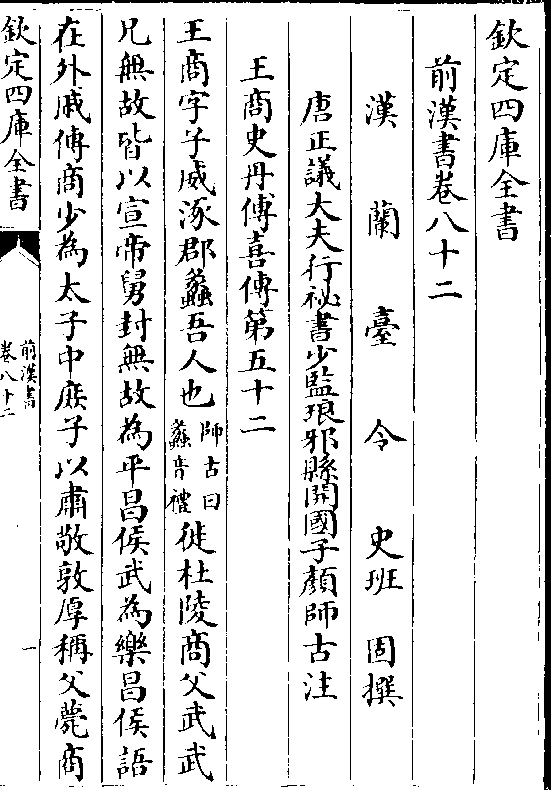 欽定四庫全書
前漢書卷八十二
漢蘭臺令史班固撰
唐正議大夫行祕書少監琅邪縣開國子顏師古注
王商史丹傅喜傳第五十二
王商字子威涿郡蠡吾人也師古曰蠡音禮徙杜陵商父武武
兄無故皆以宣帝舅封無故為平昌侯武為樂昌侯語
在外戚傳商少為太子中庶子以肅敬敦厚稱父薨商
欽定四庫全書
前漢書
卷八十二
一